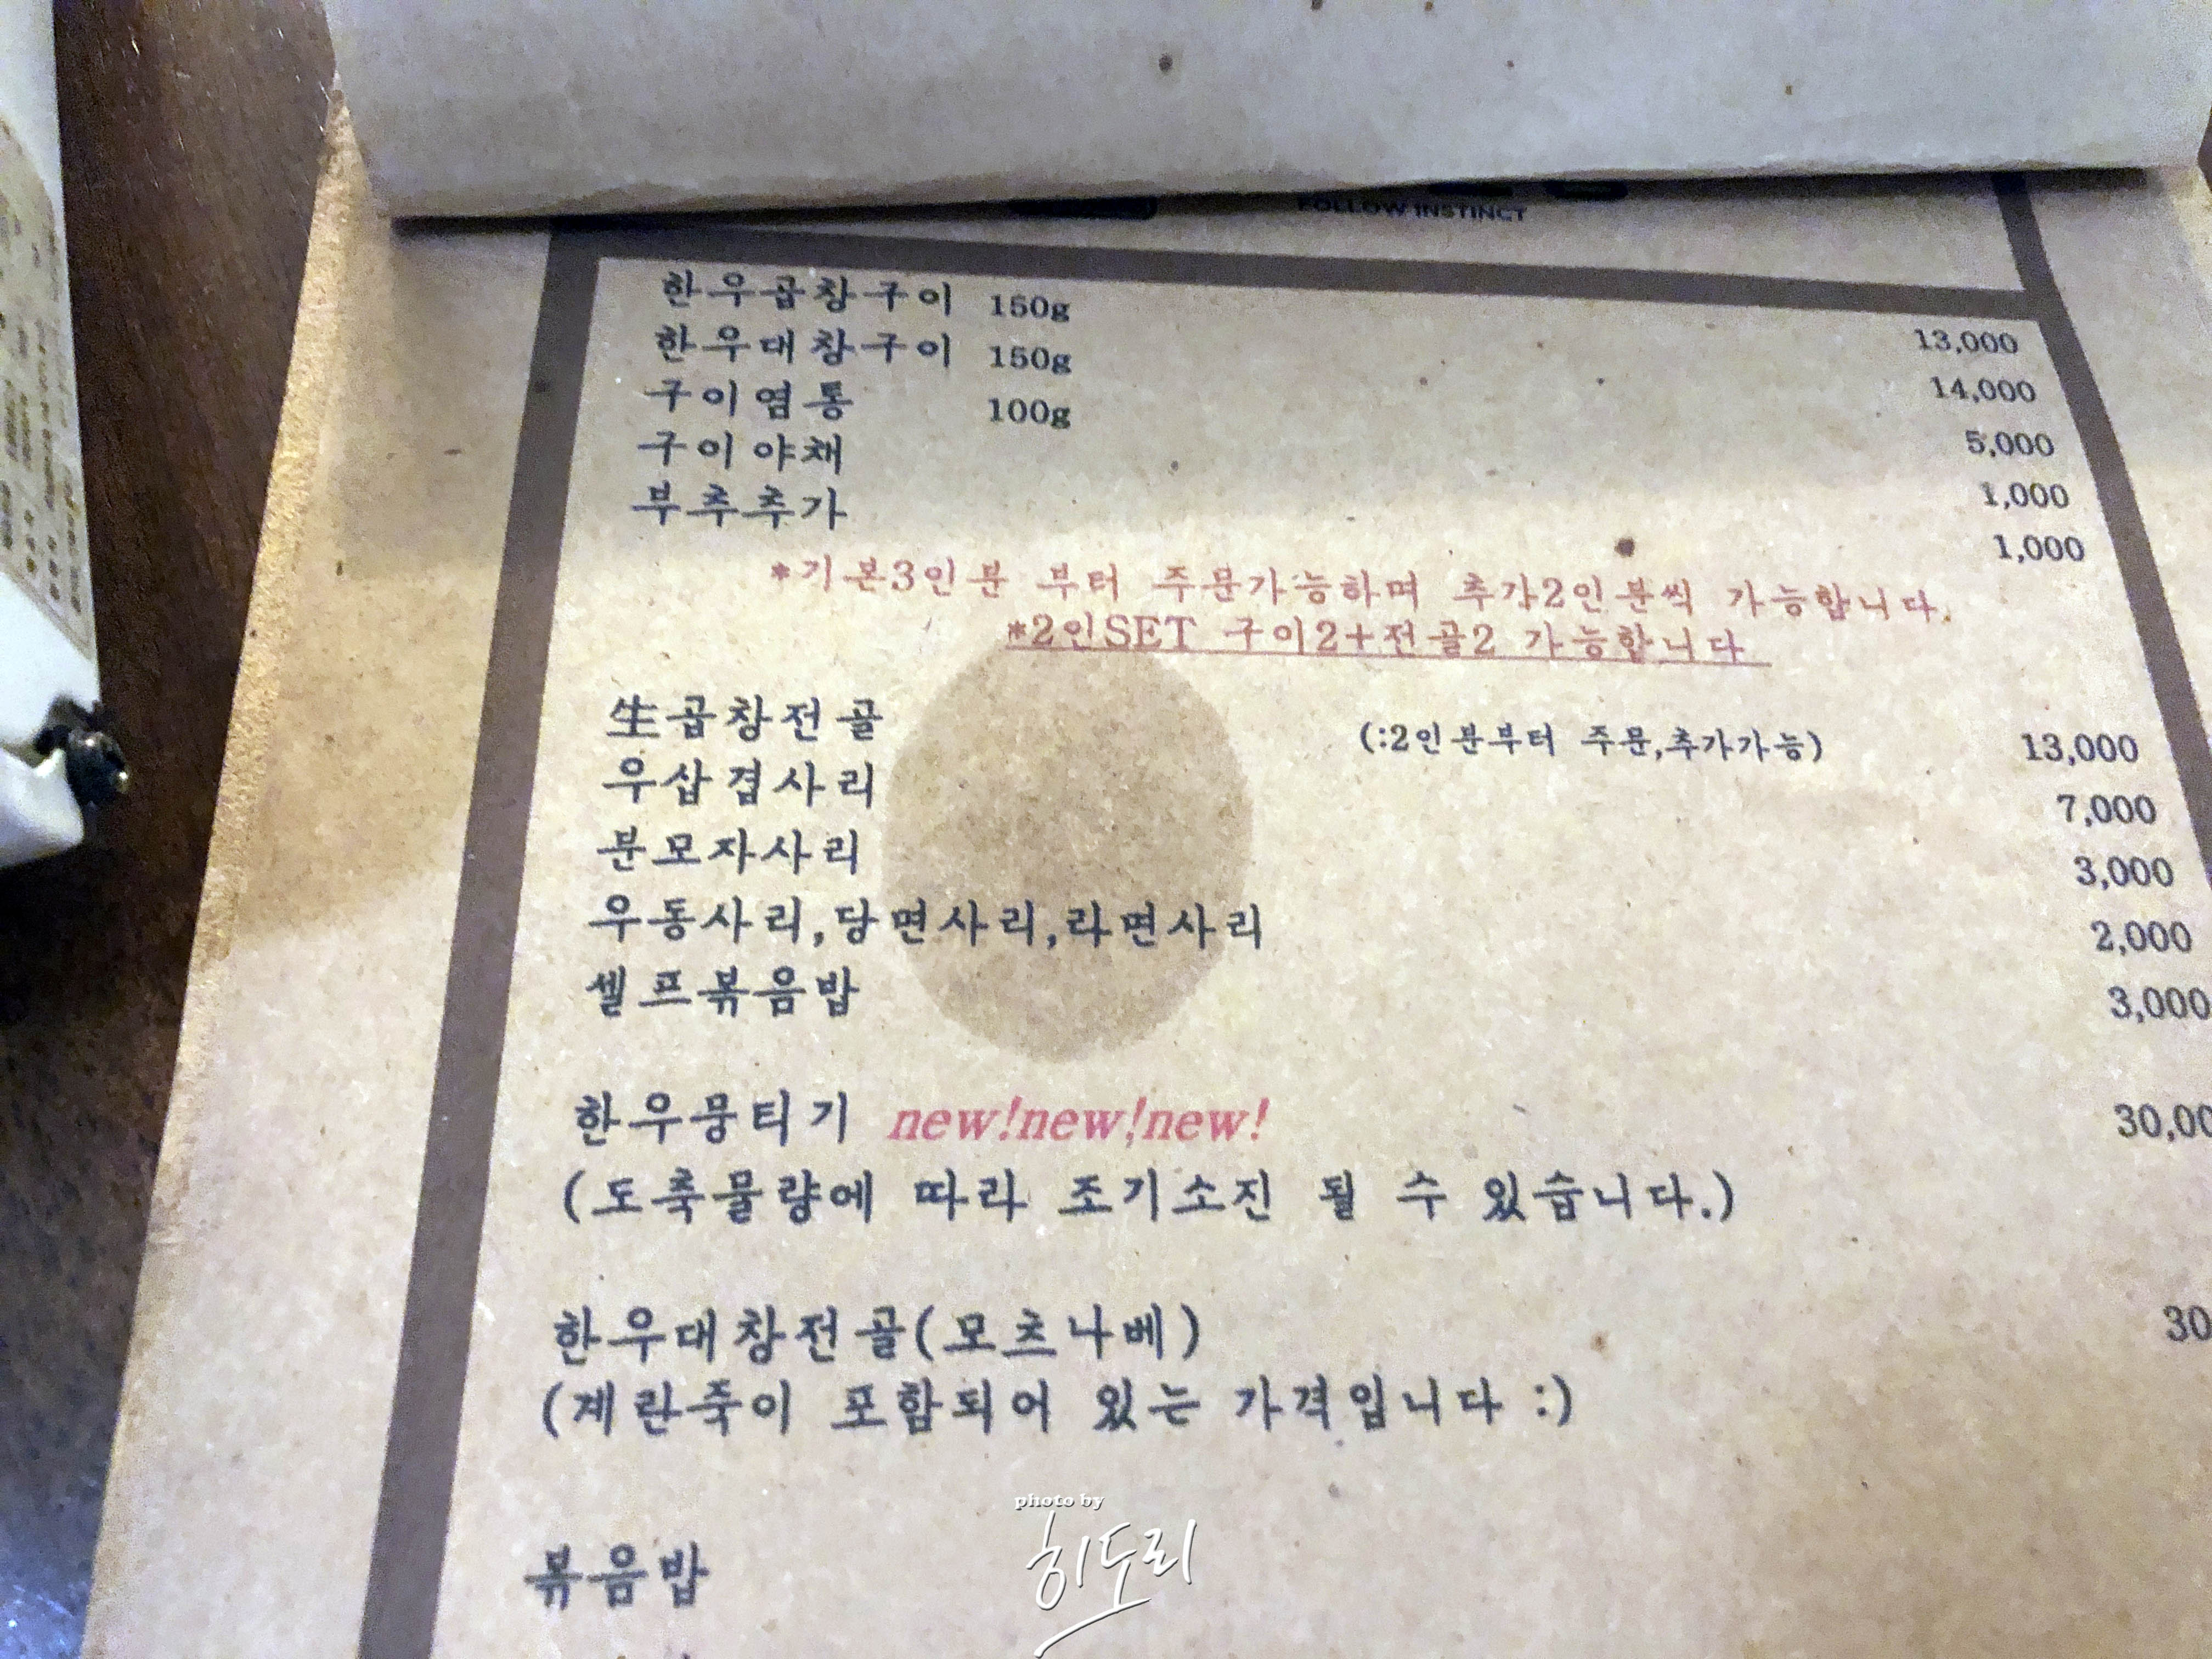 FOLLOW INSTINCT
한우곱창구이 150g 13,000
한우대창구이 150g 14,000
구이염통 100g 5,000
구이야채 1,000
부추추가 1,000
*기본3인분 부터 주문가능하며 추가2인분씩 가능합니다.
*2인SET 구이2+전골2 가능합니다
生곱창전골 (:2인분부터 주문,추가가능) 13,000
우삼겹사리 7,000
분모자사리 3,000
우동사리,당면사리,라면사리 2,000
셀프볶음밥 3,000
한우뭉티기 new!new!new! 30,00
(도축물량에 따라 조기소진 될 수 있습니다.)
한우대창전골(모츠나베) 30
(계란죽이 포함되어 있는 가격입니다 :)
볶음밥
photo by
히도리